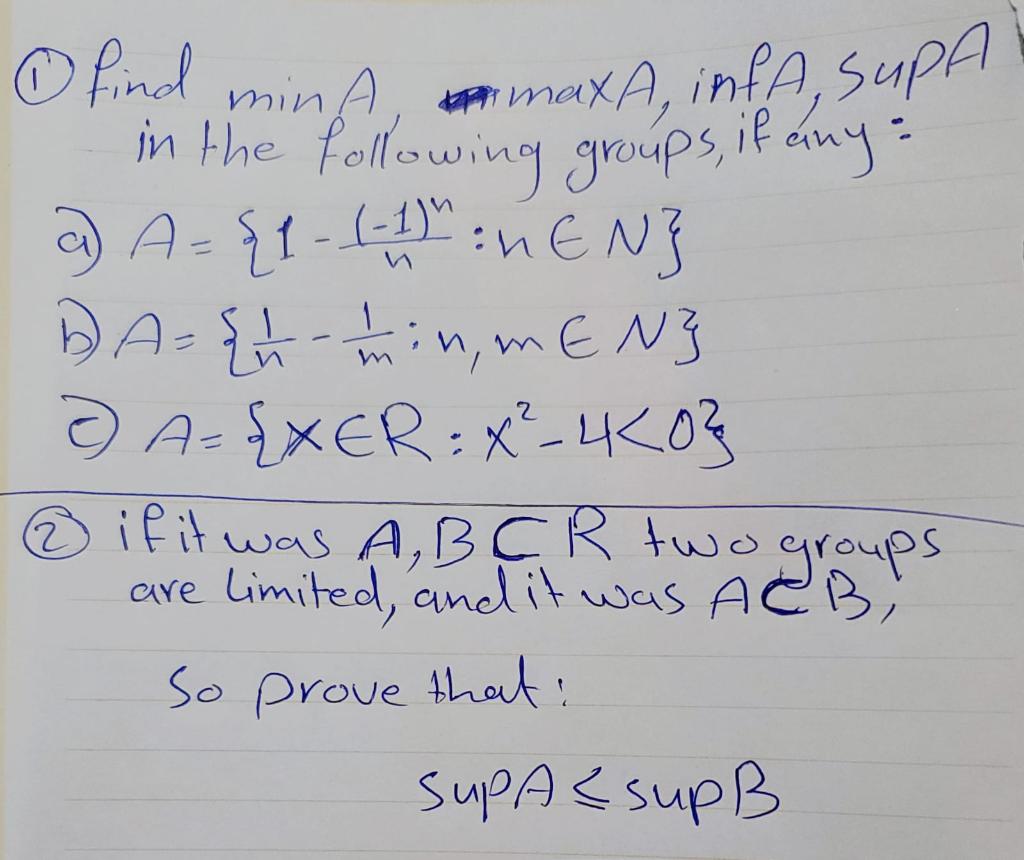 ① find min A, max A, inf A, sup A
in the following groups, if any:
a) A = {1 - (-1)ⁿ/n : n ∈ N}
b) A = {1/n - 1/m : n, m ∈ N}
c) A = {x ∈ R : x² - 4 < 0}
② if it was A, B ⊂ R two groups
are limited, and it was A ⊂ B,
So prove that:
sup A ≤ sup B